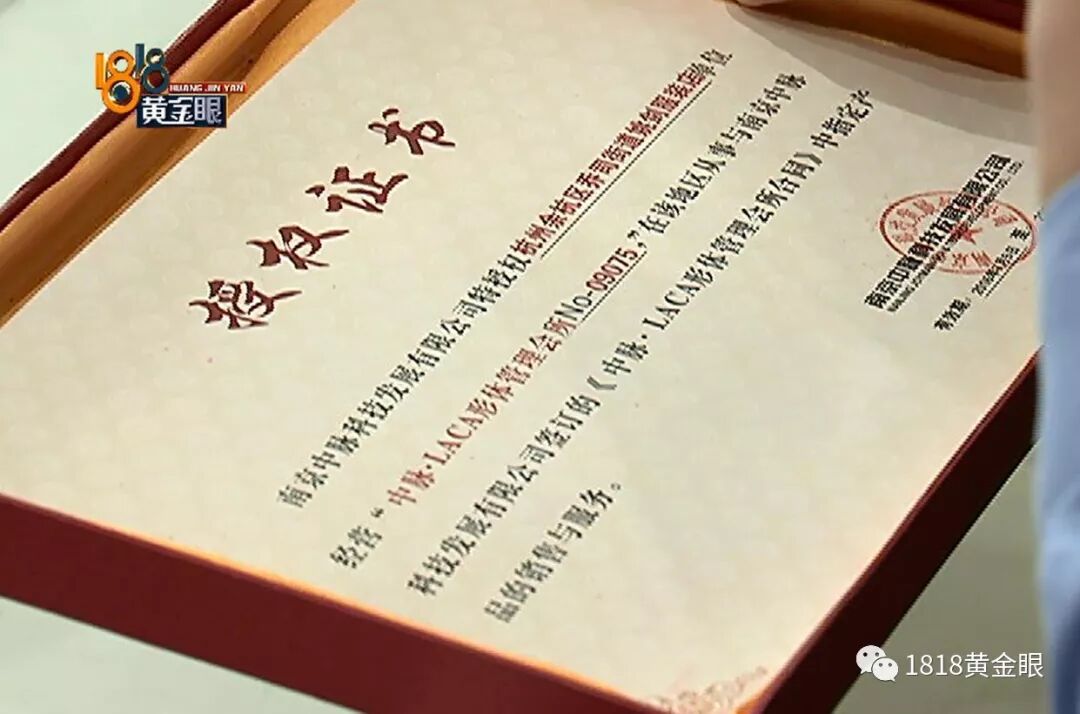 1818
HUANG JIN YAN
黄金眼
授权证书
南京中脉科技发展有限公司特授权杭州余杭区乔司街道姚剑服装店单位
经营“中脉·LACA形体管理会所No-09075,”在该地区从事与南京中脉
科技发展有限公司签订的《中脉·LACA形体管理会所合同》中指定产
品的销售与服务。
南京中脉科技发展有限公司
有效期:
1818黄金眼